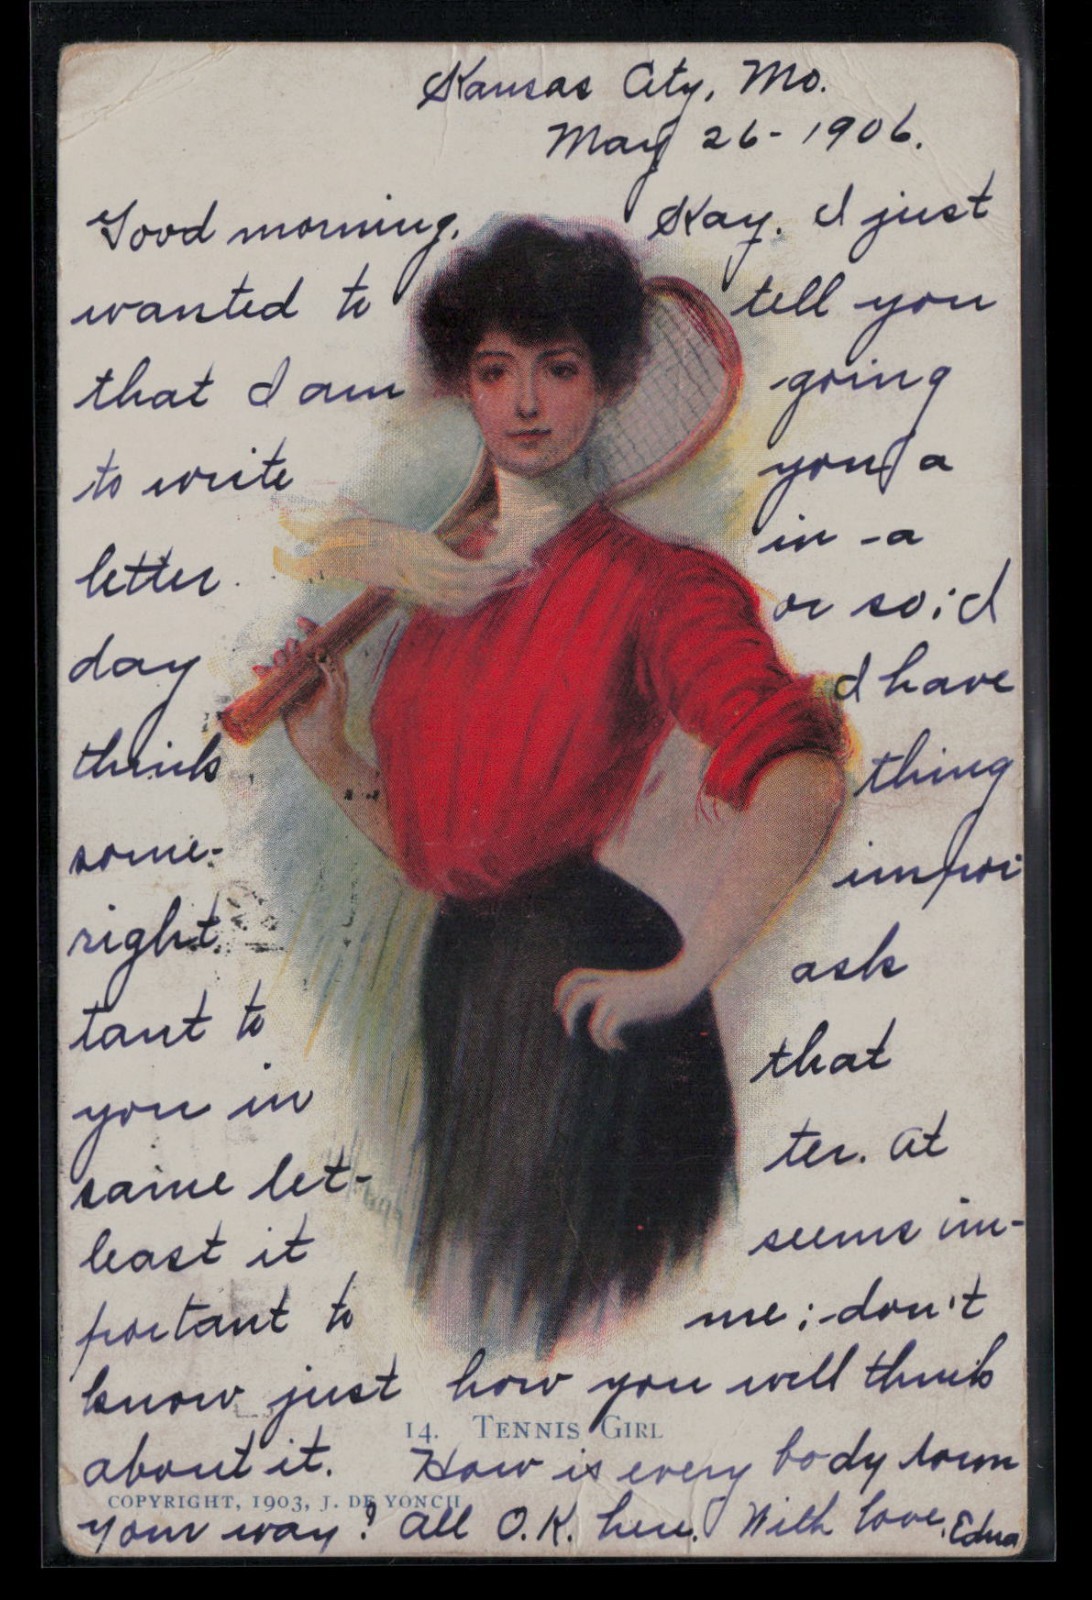 Kansas City, Mo.
May 26- 1906.
Good morning, Kay. I just
wanted to tell you
that I am going
to write you a
letter in -a
day or so; I
think I have
some- thing
right impor
tant to ask
you in that
same let- ter. At
least it seems im-
portant to me; don't
know just how you will think
14. TENNIS GIRL
about it. How is every body down
COPYRIGHT, 1903, J. DE YONCH
your way? All O.K. here. With love, Edna